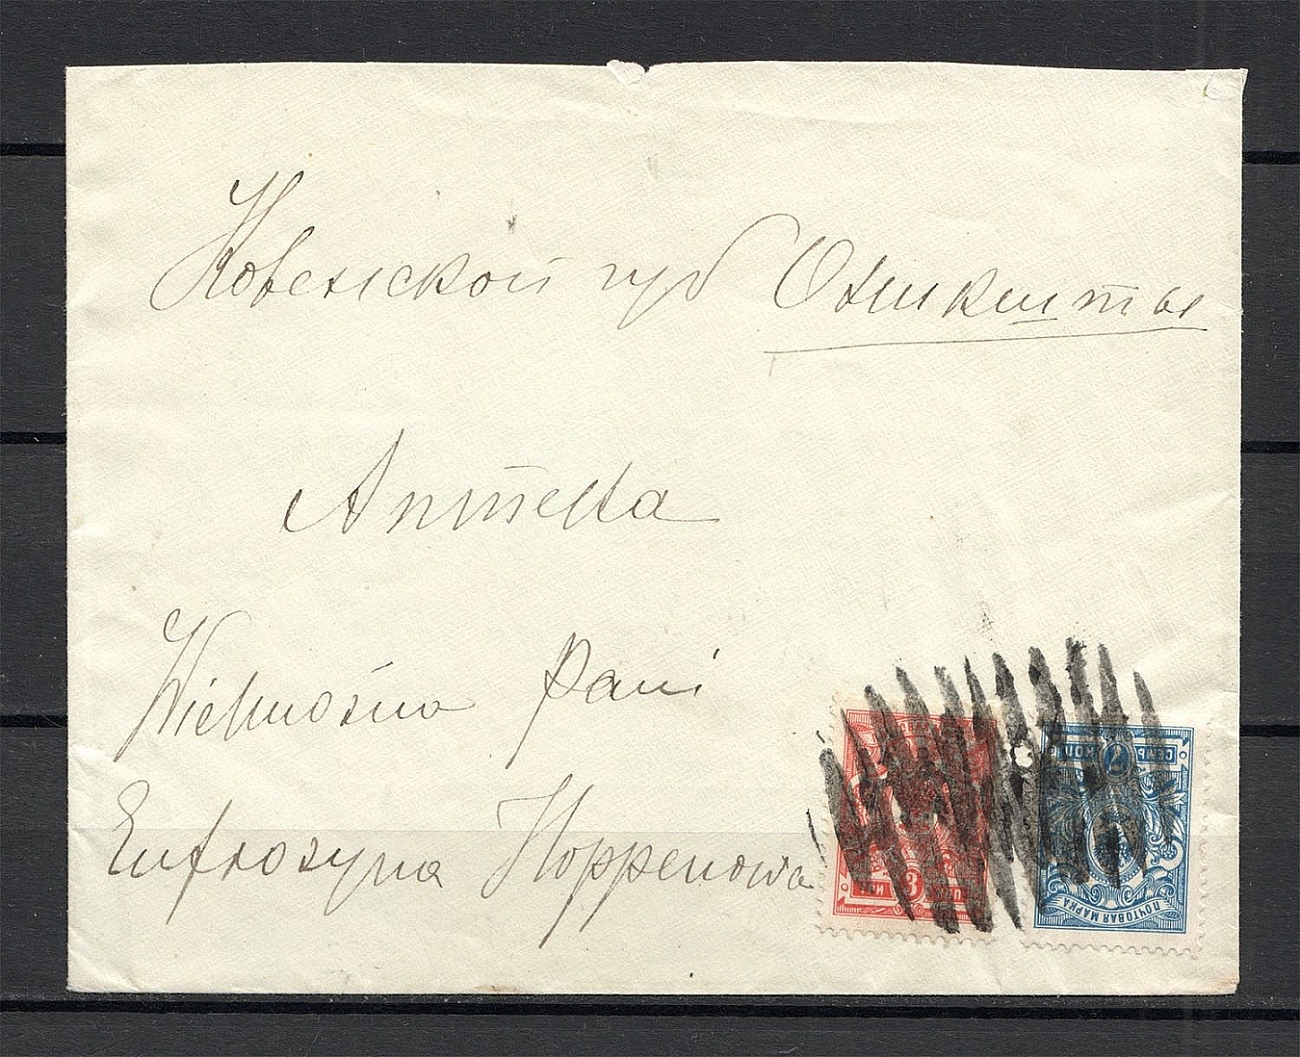 Ковенской губ Оникшты
Аптека
Wielmożna Pani
Eufrozyna Hoppenowa
3
КОП
7
СЕМЬ КОП
ПОЧТОВАЯ МАРКА